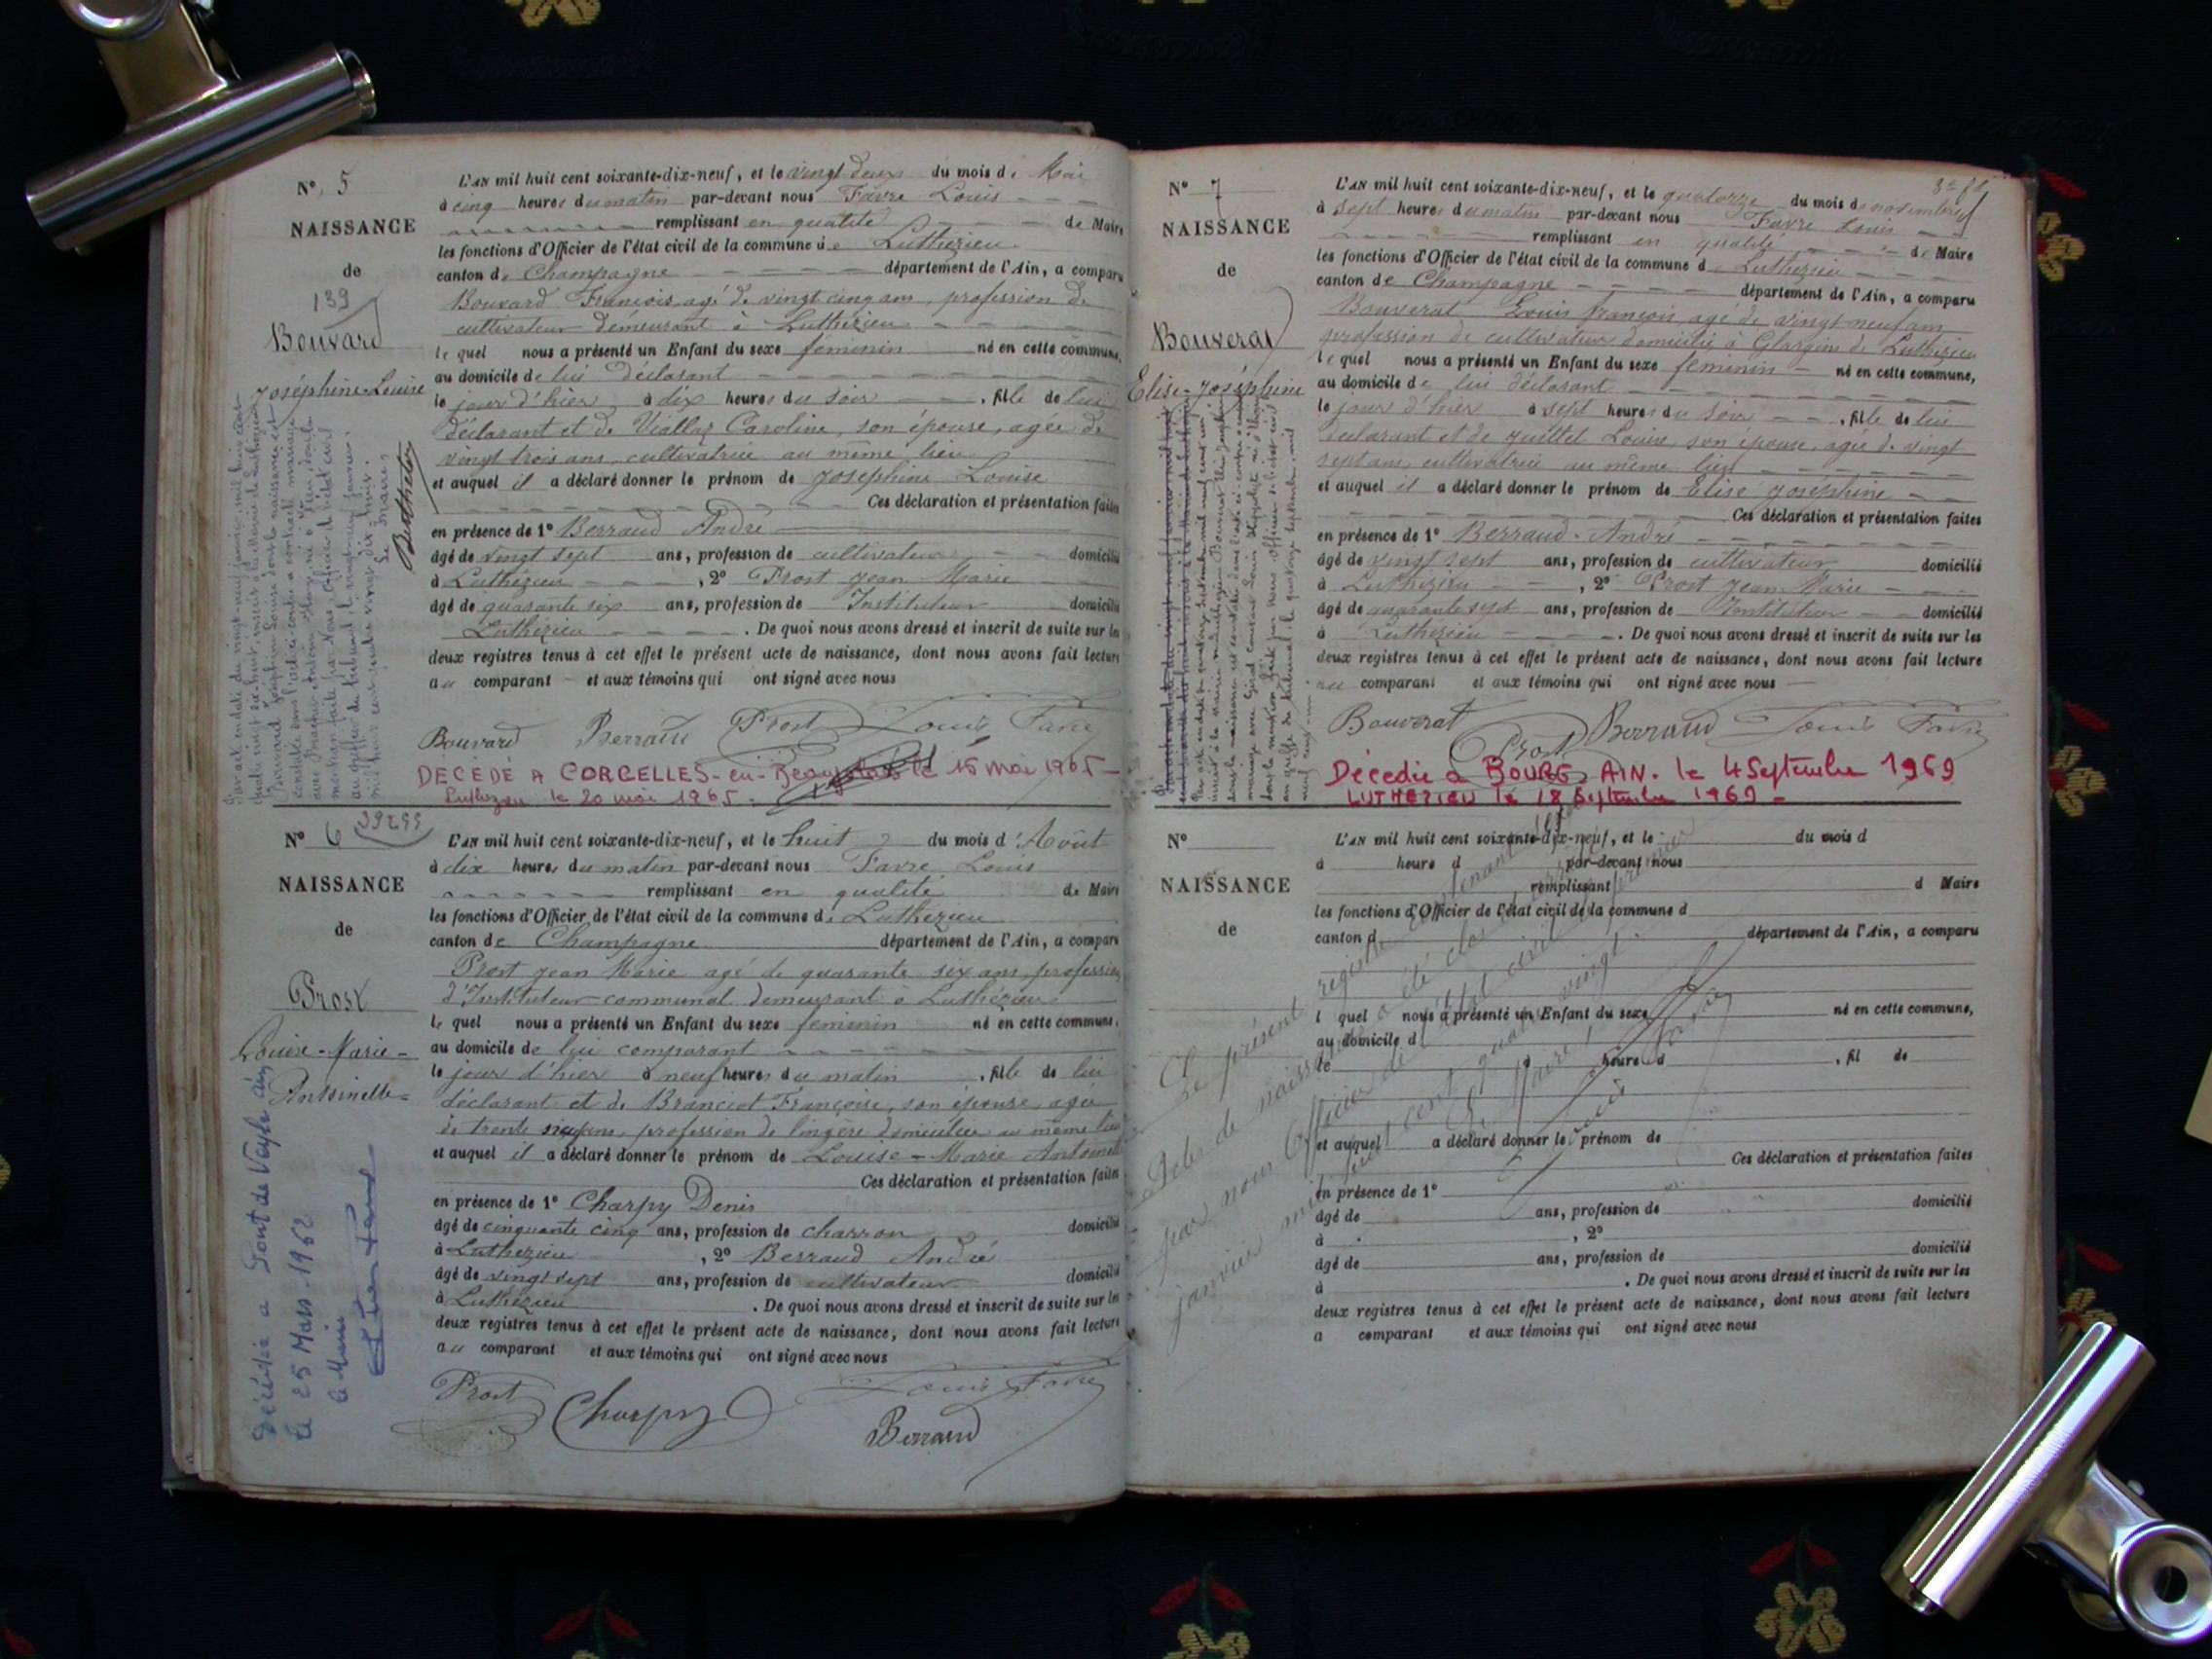 N° 5
NAISSANCE
de
139
Bouvard
Joséphine-Louise
L'AN mil huit cent soixante-dix-neuf, et le vingt deux du mois de Mai
à cinq heures du matin par-devant nous Favre Louis
remplissant en qualité de Maire
les fonctions d'Officier de l'état civil de la commune de Luthezieu
canton de Champagne département de l'Ain, a comparu
Bouvard François agé de vingt cinq ans, profession de
cultivateur demeurant à Luthezieu
lequel nous a présenté un Enfant du sexe féminin né en cette commune,
au domicile de lui déclarant
le jour d'hier à dix heures du soir, fille de lui
déclarant et de Viallaz Caroline, son épouse, agée de
vingt trois ans, cultivatrice au même lieu
et auquel il a déclaré donner le prénom de Joséphine Louise
Ces déclaration et présentation faites
en présence de 1° Berraud André
âgé de vingt sept ans, profession de cultivateur domicilié
à Luthezieu, 2° Prost Jean Marie
âgé de quarante six ans, profession de Instituteur domicilié
Luthezieu. De quoi nous avons dressé et inscrit de suite sur les
deux registres tenus à cet effet le présent acte de naissance, dont nous avons fait lecture
au comparant et aux témoins qui ont signé avec nous
Bouvard Berraud Prost Louis Favre
DÉCÉDÉ A CORCELLES-en-Beaujolais le 15 Mai 1965
Luthezieu le 20 mai 1965.
Le Maire,
Berthelon
N° 6
39299
NAISSANCE
de
Prost
Louise-Marie-
Antoinette
L'AN mil huit cent soixante-dix-neuf, et le huit du mois d'Août
à dix heures du matin par-devant nous Favre Louis
remplissant en qualité de Maire
les fonctions d'Officier de l'état civil de la commune de Luthezieu
canton de Champagne département de l'Ain, a comparu
Prost Jean Marie agé de quarante six ans, profession
d'Instituteur communal demeurant à Luthézieu
lequel nous a présenté un Enfant du sexe féminin né en cette commune,
au domicile de lui comparant
le jour d'hier à neuf heures du matin, fille de lui
déclarant et de Branciot Françoise, son épouse, agée
de trente ans, profession de lingère domiciliée au même lieu
et auquel il a déclaré donner le prénom de Louise-Marie Antoinette
Ces déclaration et présentation faites
en présence de 1° Charpy Denis
âgé de cinquante cinq ans, profession de charron domicilié
à Luthezieu, 2° Berraud André
âgé de vingt sept ans, profession de cultivateur domicilié
à Luthezieu. De quoi nous avons dressé et inscrit de suite sur les
deux registres tenus à cet effet le présent acte de naissance, dont nous avons fait lecture
au comparant et aux témoins qui ont signé avec nous
Prost Charpy Louis Favre
Berraud
Décédée a Pont de Veyle Ain
le 25 Mars 1962
le Maire
N° 7
NAISSANCE
de
Bouverat
Elise-Joséphine
L'AN mil huit cent soixante-dix-neuf, et le quatorze du mois de novembre
à sept heures du matin par-devant nous Favre Louis
remplissant en qualité de Maire
les fonctions d'Officier de l'état civil de la commune de Luthezieu
canton de Champagne département de l'Ain, a comparu
Bouverat Louis François, agé de vingt neuf ans
profession de cultivateur domicilié à de Luthezieu
lequel nous a présenté un Enfant du sexe feminin né en cette commune,
au domicile de lui déclarant
le jour d'hier à sept heures du soir, fille de lui
déclarant et de Juillet Louise, son épouse, agée de vingt
sept ans, cultivatrice au même lieu
et auquel il a déclaré donner le prénom de Elise Joséphine
Ces déclaration et présentation faites
en présence de 1° Berraud André
âgé de vingt sept ans, profession de cultivateur domicilié
à Luthezieu, 2° Prost Jean Marie
âgé de quarante sept ans, profession de Instituteur domicilié
à Luthezieu. De quoi nous avons dressé et inscrit de suite sur les
deux registres tenus à cet effet le présent acte de naissance, dont nous avons fait lecture
au comparant et aux témoins qui ont signé avec nous
Bouverat Prost Berraud Louis Favre
Décédée a BOURG AIN. le 4 Septembre 1969
LUTHEZIEU le 18 Septembre 1969
N°
NAISSANCE
de
L'AN mil huit cent soixante-dix-neuf, et le du mois d
à heure d par-devant nous
remplissant d Maire
les fonctions d'Officier de l'état civil de la commune d
canton d département de l'Ain, a comparu
l quel nous a présenté un Enfant du sexe né en cette commune,
au domicile d
le à heure d, fil de
et auquel a déclaré donner le prénom de
Ces déclaration et présentation faites
en présence de 1°
âgé de ans, profession de domicilié
à, 2°
âgé de ans, profession de domicilié
à. De quoi nous avons dressé et inscrit de suite sur les
deux registres tenus à cet effet le présent acte de naissance, dont nous avons fait lecture
a comparant et aux témoins qui ont signé avec nous
Le présent registre contenant sept
Actes de naissance a été clos et arrêté
par nous Officier de l'état civil premier
janvier mil huit cent quatre vingt.
Le Maire,
Louis Favre